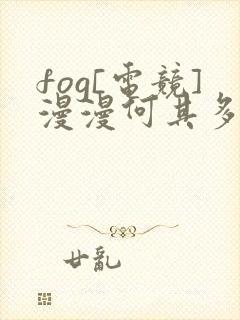 fog[電競]
漫漫何其多
廿亂